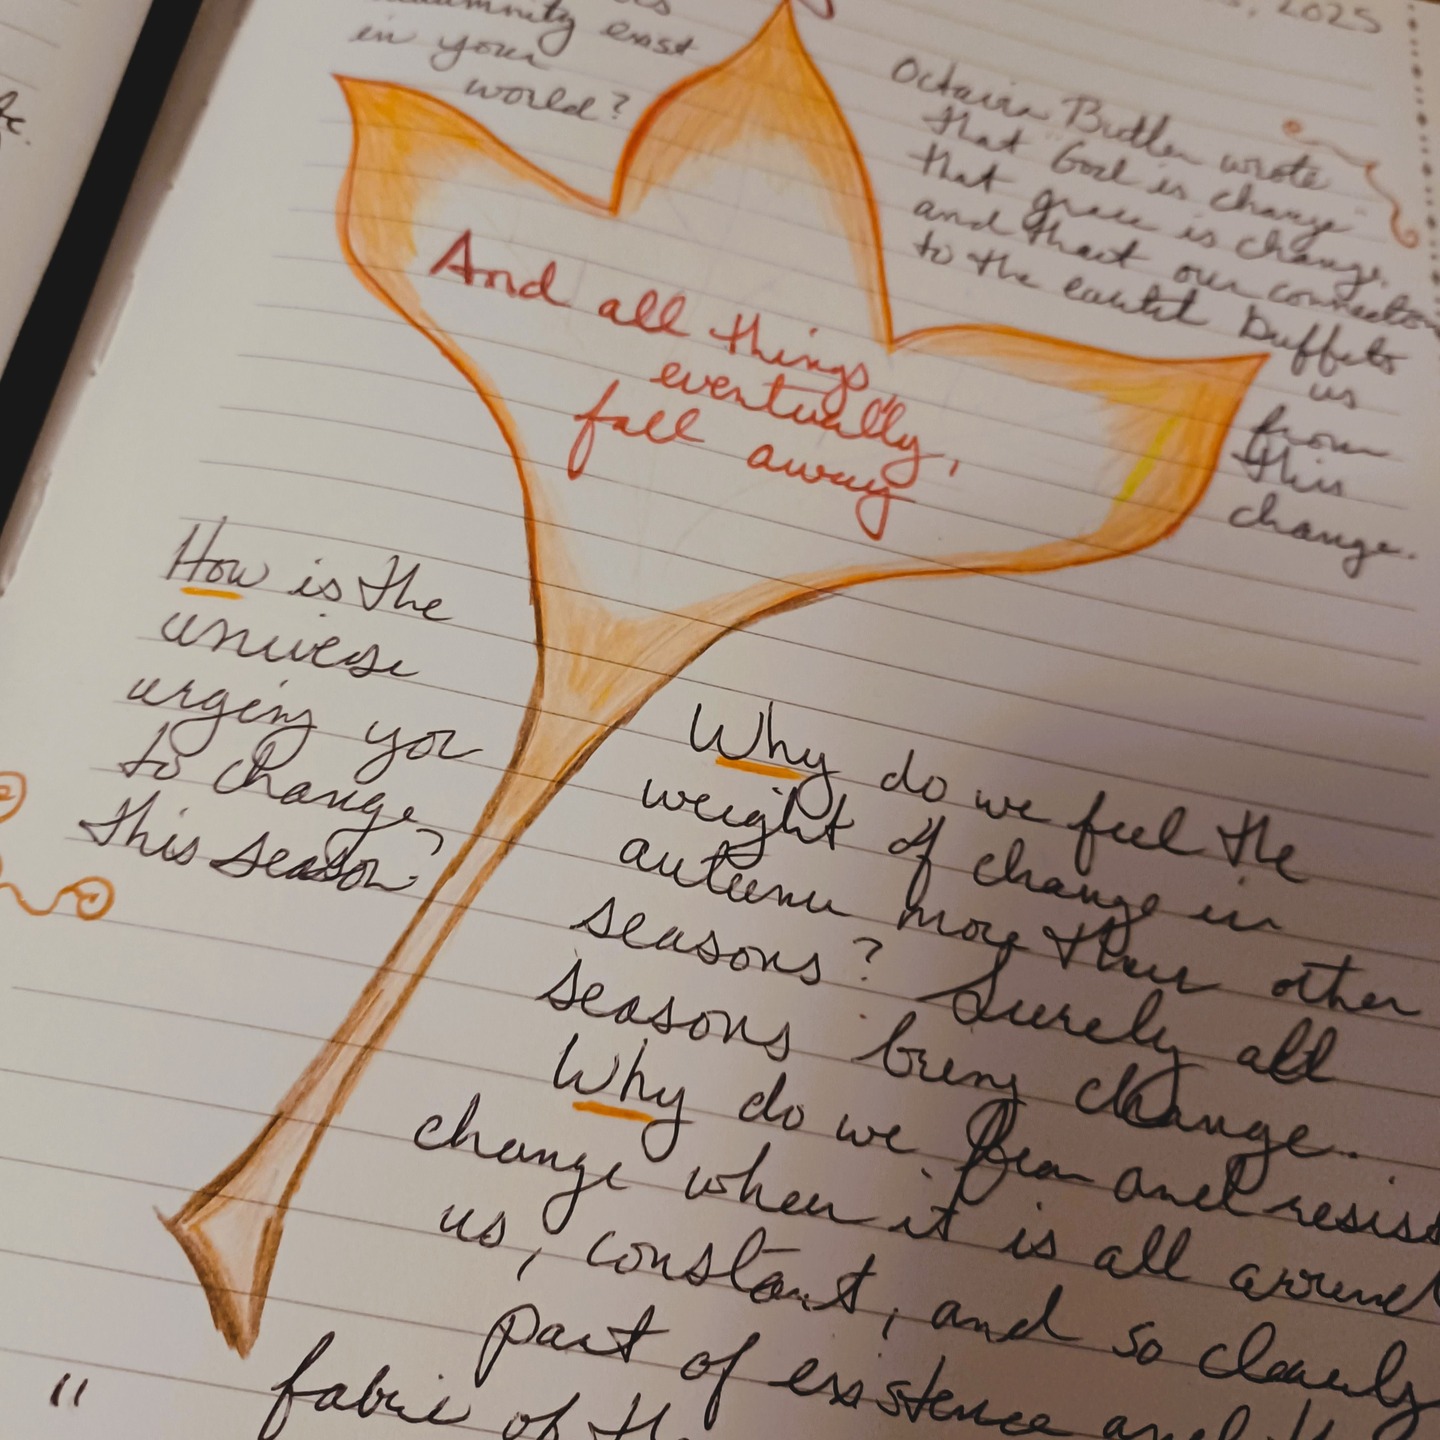 2025
exist
in your
world?
Octavia Butler wrote
that God is change
that grace is change.
and that our connection
to the earth buffets
us
from
this
change.
And all things,
eventually,
fall away
How is the
universe
urging you
to change
this season?
Why do we feel the
weight of change in
autumn more than other
seasons? Surely all
seasons bring change.
Why do we fear and resist
change when it is all around
us, constant, and so clearly
part of existence and
fabric of
"